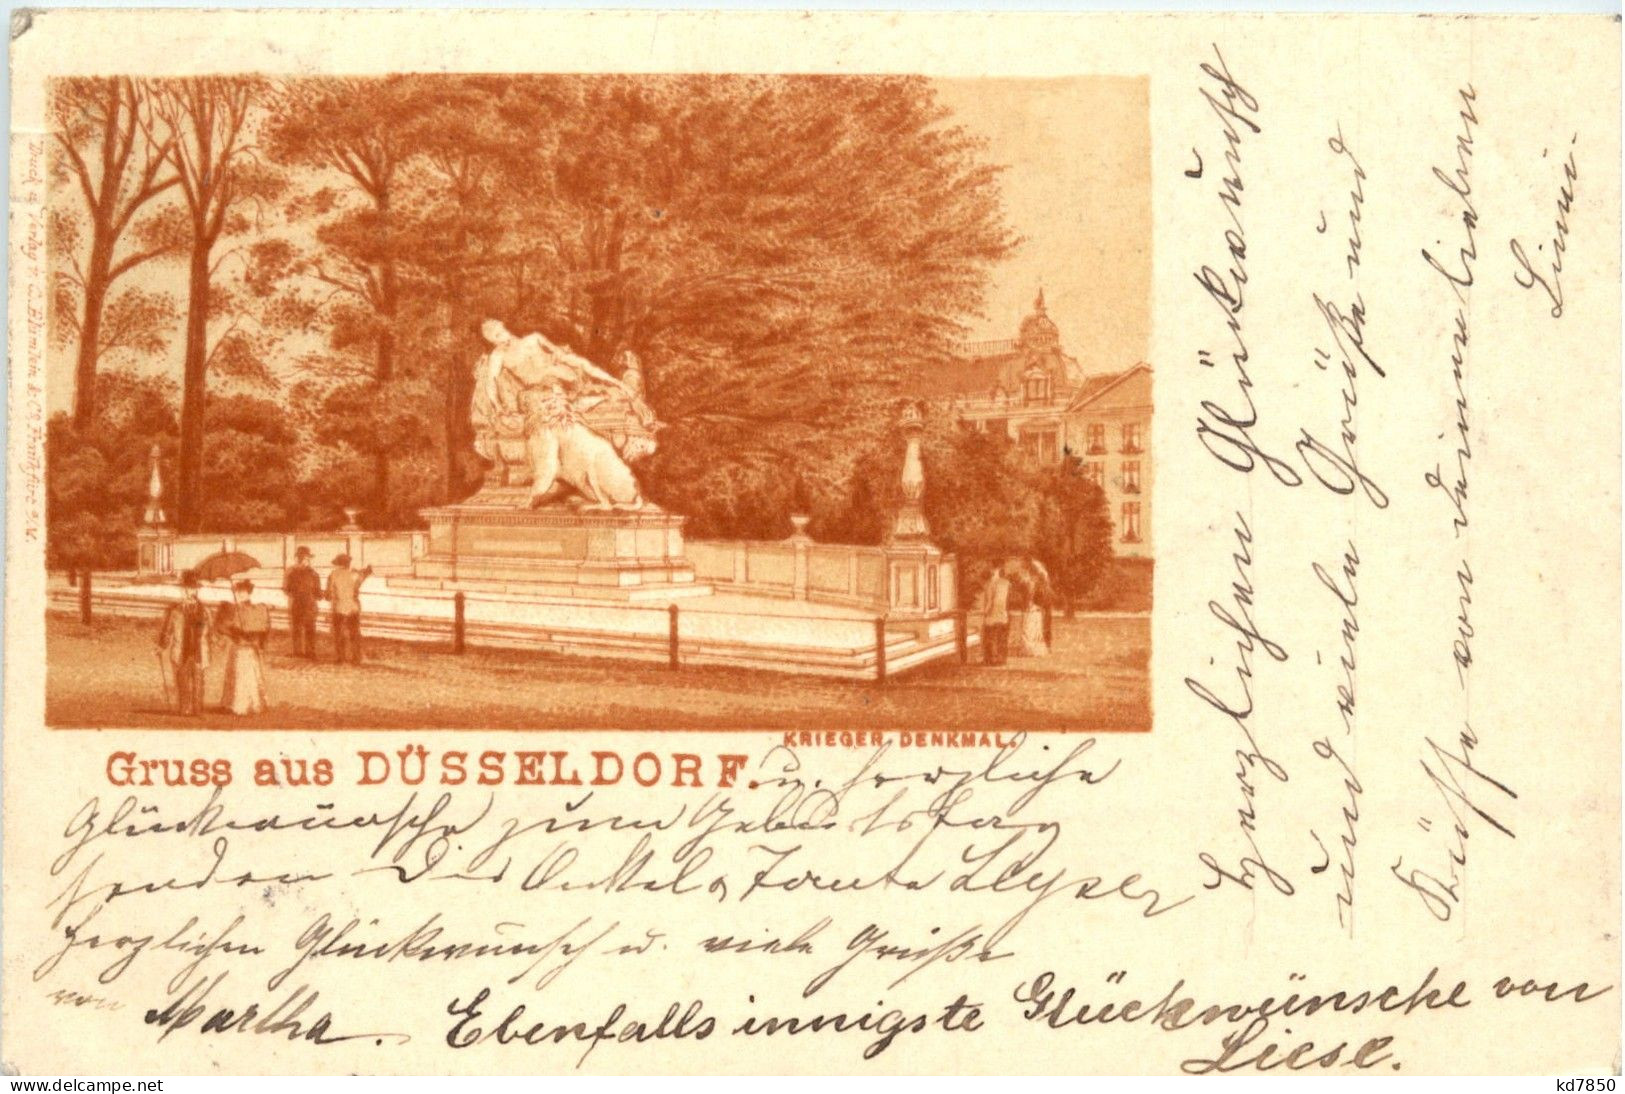 Druck u. Verlag v. C. Edenstein & Co. Frankfurt a/M.
KRIEGER-DENKMAL.
Gruss aus DÜSSELDORF.
u. herzliche
Glückwünsche zum Geburtstag
senden Dir Onkel u. Tante
herzlichen Glückwunsch u. viele Grüße
von Martha. Ebenfalls innigste Glückwünsche von
Liese.
Herzlichen Glückwunsch
und viele Grüße und
Küsse von deiner lieben
delcampe.net
kd7850